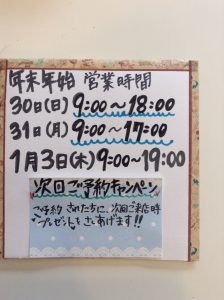 年末年始 営業時間
30日(日) 9:00〜18:00
31日(月) 9:00〜17:00
1月3日(木) 9:00〜19:00
次回ご予約キャンペーン
ご予約 された方に、次回ご来店時
プレゼントをさしあげます!!